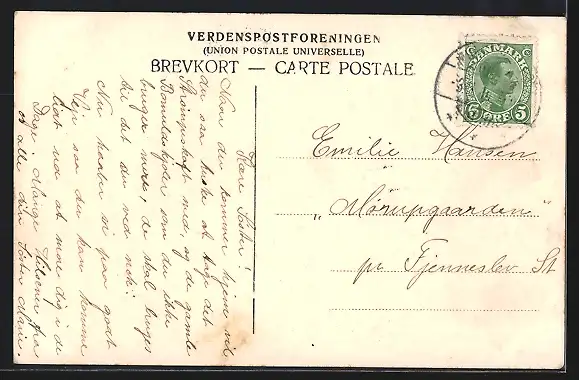 VERDENSPOSTFORENINGEN
(UNION POSTALE UNIVERSELLE)
BREVKORT — CARTE POSTALE
DANMARK
5 ØRE 5
Kære Søster!
Naar du kommer hjem vil
du saa huske at tage det
med, og de gamle
som du ikke
bruger mere, de skal bruges
til det du ved nok.
Nu haaber vi paa godt
Vejr saa du kan komme
ud at more dig i de
Dage. Mange Hilsener fra
os alle din Søster Marie.
Emilie Hansen
„Mørupgaarden"
pr Fjenneslev St